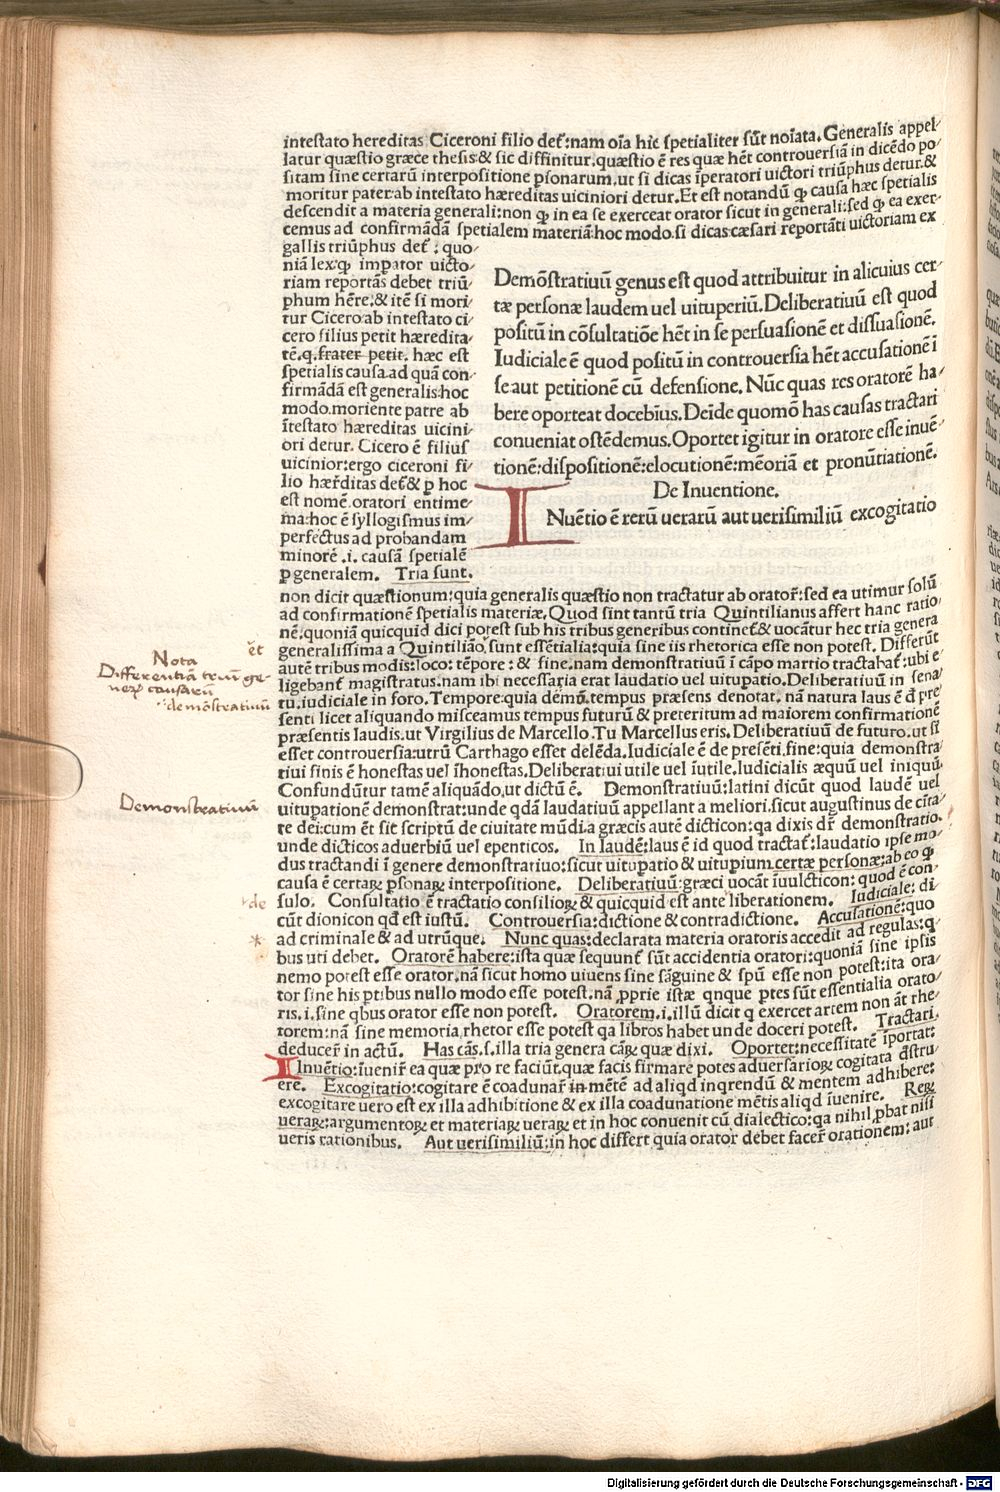 intestato hereditas Ciceroni filio det᷑:nam oīa hic spetialiter sūt noīata.Generalis appel⸗
latur quæstio græce thesis:& sic diffinitur.quæstio ē res quæ hēt controuersiā in dicēdo po
sitam sine certarū interpositione ꝑsonarum.ut si dicas īperatori uictori triūphus detur.&
moritur pater:ab intestato hæreditas uiciniori detur.Et est notandū ꝙ causa hæc spetialis
descendit a materia generali:non ꝙ in ea se exerceat orator sicut in generali:sed ꝙ ea exer⸗
cemus ad confirmādā spetialem materiā:hoc modo.si dicas:cæsari reportāti uictoriam ex
gallis triūphus det᷑ : quo⸗
niā lex:ꝙ impator uicto⸗
riam reportās debet triū⸗
phum hēre.& itē si mori⸗
tur Cicero:ab intestato ci⸗
cero filius petit hæredita⸗
tē.q.frater petit. hæc est
spetialis causa.ad quā con⸗
firmādā est generalis:hoc
modo.moriente patre ab
ītestato hæreditas uicini⸗
ori detur. Cicero ē filius
uicinior:ergo ciceroni fi⸗
lio hær̄ditas det᷑& ꝓ hoc
est nomē oratori entime⸗
ma:hoc ē syllogismus im⸗
perfectus ad probandam
minorē .i. causā spetialē
ꝑ generalem. Tria sunt.
Demōstratiuū genus est quod attribuitur in alicuius cer⸗
tæ personæ laudem uel uituperiū.Deliberatiuū est quod
positū in cōsultatiōe hēt in se persuasionē et dissuasionē.
Iudiciale ē quod positū in controuersia hēt accusationē ī
se aut petitionē cū defensione. Nūc quas res oratorē ha⸗
bere oporteat docebīus.Deīde quomō has causas tractari
conueniat ostēdemus.Oportet igitur in oratore esse inuē⸗
tionē:dispositionē:elocutionē:mēoriā et pronūtiationē.
De Inuentione.
INuētio ē rerū uerarū aut uerisimiliū excogitatio
non dicit quæstionum:quia generalis quæstio non tractatur ab orator̄:sed ea utimur solū
ad confirmationē spetialis materiæ.Quod sint tantū tria Quintilianus affert hanc ratio⸗
nē.quoniā quicquid dici potest sub his tribus generibus continet᷑& uocātur hec tria genera
generalissima a Quintiliāo.sunt essētialia:quia sine iis rhetorica esse non potest. Differūt
autē tribus modis:loco: tēpore : & fine.nam demonstratiuū ī cāpo martio tractabat᷑:ubi e
ligebant᷑ magistratus.nam ibi necessaria erat laudatio uel uitupatio.Deliberatiuū in sena⸗
tu.iudiciale in foro. Tempore:quia demō.tempus præsens denotat. nā natura laus ē d pre
senti licet aliquando misceamus tempus futurū & preteritum ad maiorem confirmationē
præsentis laudis.ut Virgilius de Marcello.Tu Marcellus eris. Deliberatiuū de futuro.ut si
esset controuersia:utrū Carthago esset delēda.Iudiciale ē de presēti.fine:quia demonstra⸗
tiui finis ē honestas uel īhonestas.Deliberatiui utile uel īutile.Iudicialis æquū uel iniquū.
Confundūtur tamē aliquādo.ut dictū ē. Demonstratiuū:latini dicūt quod laudē uel
uitupationē demonstrat:unde qdā laudatiuū appellant a meliori.sicut augustinus de ciīta⸗
te dei:cum ēt sit scriptū de ciuitate mūdi.a græcis autē dicticon:qa dixis dr̄ demonstratio.
unde dicticos aduerbiū uel epenticos. In laudē:laus ē id quod tractat᷑:laudatio ipse mo⸗
dus tractandi ī genere demonstratiuo:sicut uitupatio & uitupium.certæ personæ:ab eo ꝙ
causa ē certaꝝ ꝑsonaꝝ interpositione. Deliberatiuū:græci uocāt īuulcticon: quod ē con⸗
sulo. Consultatio ē tractatio consilioꝝ & quicquid est ante liberationem. Iudiciale: di
cūt dionicon qd est iustū. Controuersia:dictione & contradictione. Accusationē:quo
ad criminale & ad utrūque. Nunc quas:declarata materia oratoris accedit ad regulas:q⸗
bus uti debet. Oratorē habere:ista quæ sequunt᷑ sūt accidentia oratori:quoniā sine ipsis
nemo potest esse orator.nā sicut homo uiuens sine sāguine & spū esse non potest:ita ora⸗
tor sine his ptibus nullo modo esse potest.nā ꝓprie istæ qnque ptes sūt essentialia orato⸗
ris.i.sine qbus orator esse non potest. Oratorem.i.illū dicit q exercet artem non āt rhe⸗
torem:nā sine memoria rhetor esse potest qa libros habet unde doceri potest. Tractari.
deducer̄ in actū. Has cās.s.illa tria genera cāꝝ quæ dixi. Oportet:necessitatē īportat:
Inuētio:īuenir̄ ea quæ pro re faciūt.quæ facis firmare potes aduersarioꝝ cogitata dstru⸗
ere. Excogitatio:cogitare ē coadunar̄ in mētē ad aliqd inqrendū & mentem adhibere:
excogitare uero est ex illa adhibitione & ex illa coadunatione mētis aliqd īuenire. Reꝝ
ueraꝝ:argumentoꝝ et materiaꝝ ueraꝝ et in hoc conuenit cū dialectico:qa nihil ꝓbat nisi
ueris rationibus. Aut uerisimiliū:in hoc differt quia orator debet facer̄ orationem: aut
Nota
Differentiā triū ge⸗
neꝝ causarū
demōstratiuū
et
Demonstratiuū
de
Digitalisierung gefördert durch die Deutsche Forschungsgemeinschaft - DFG